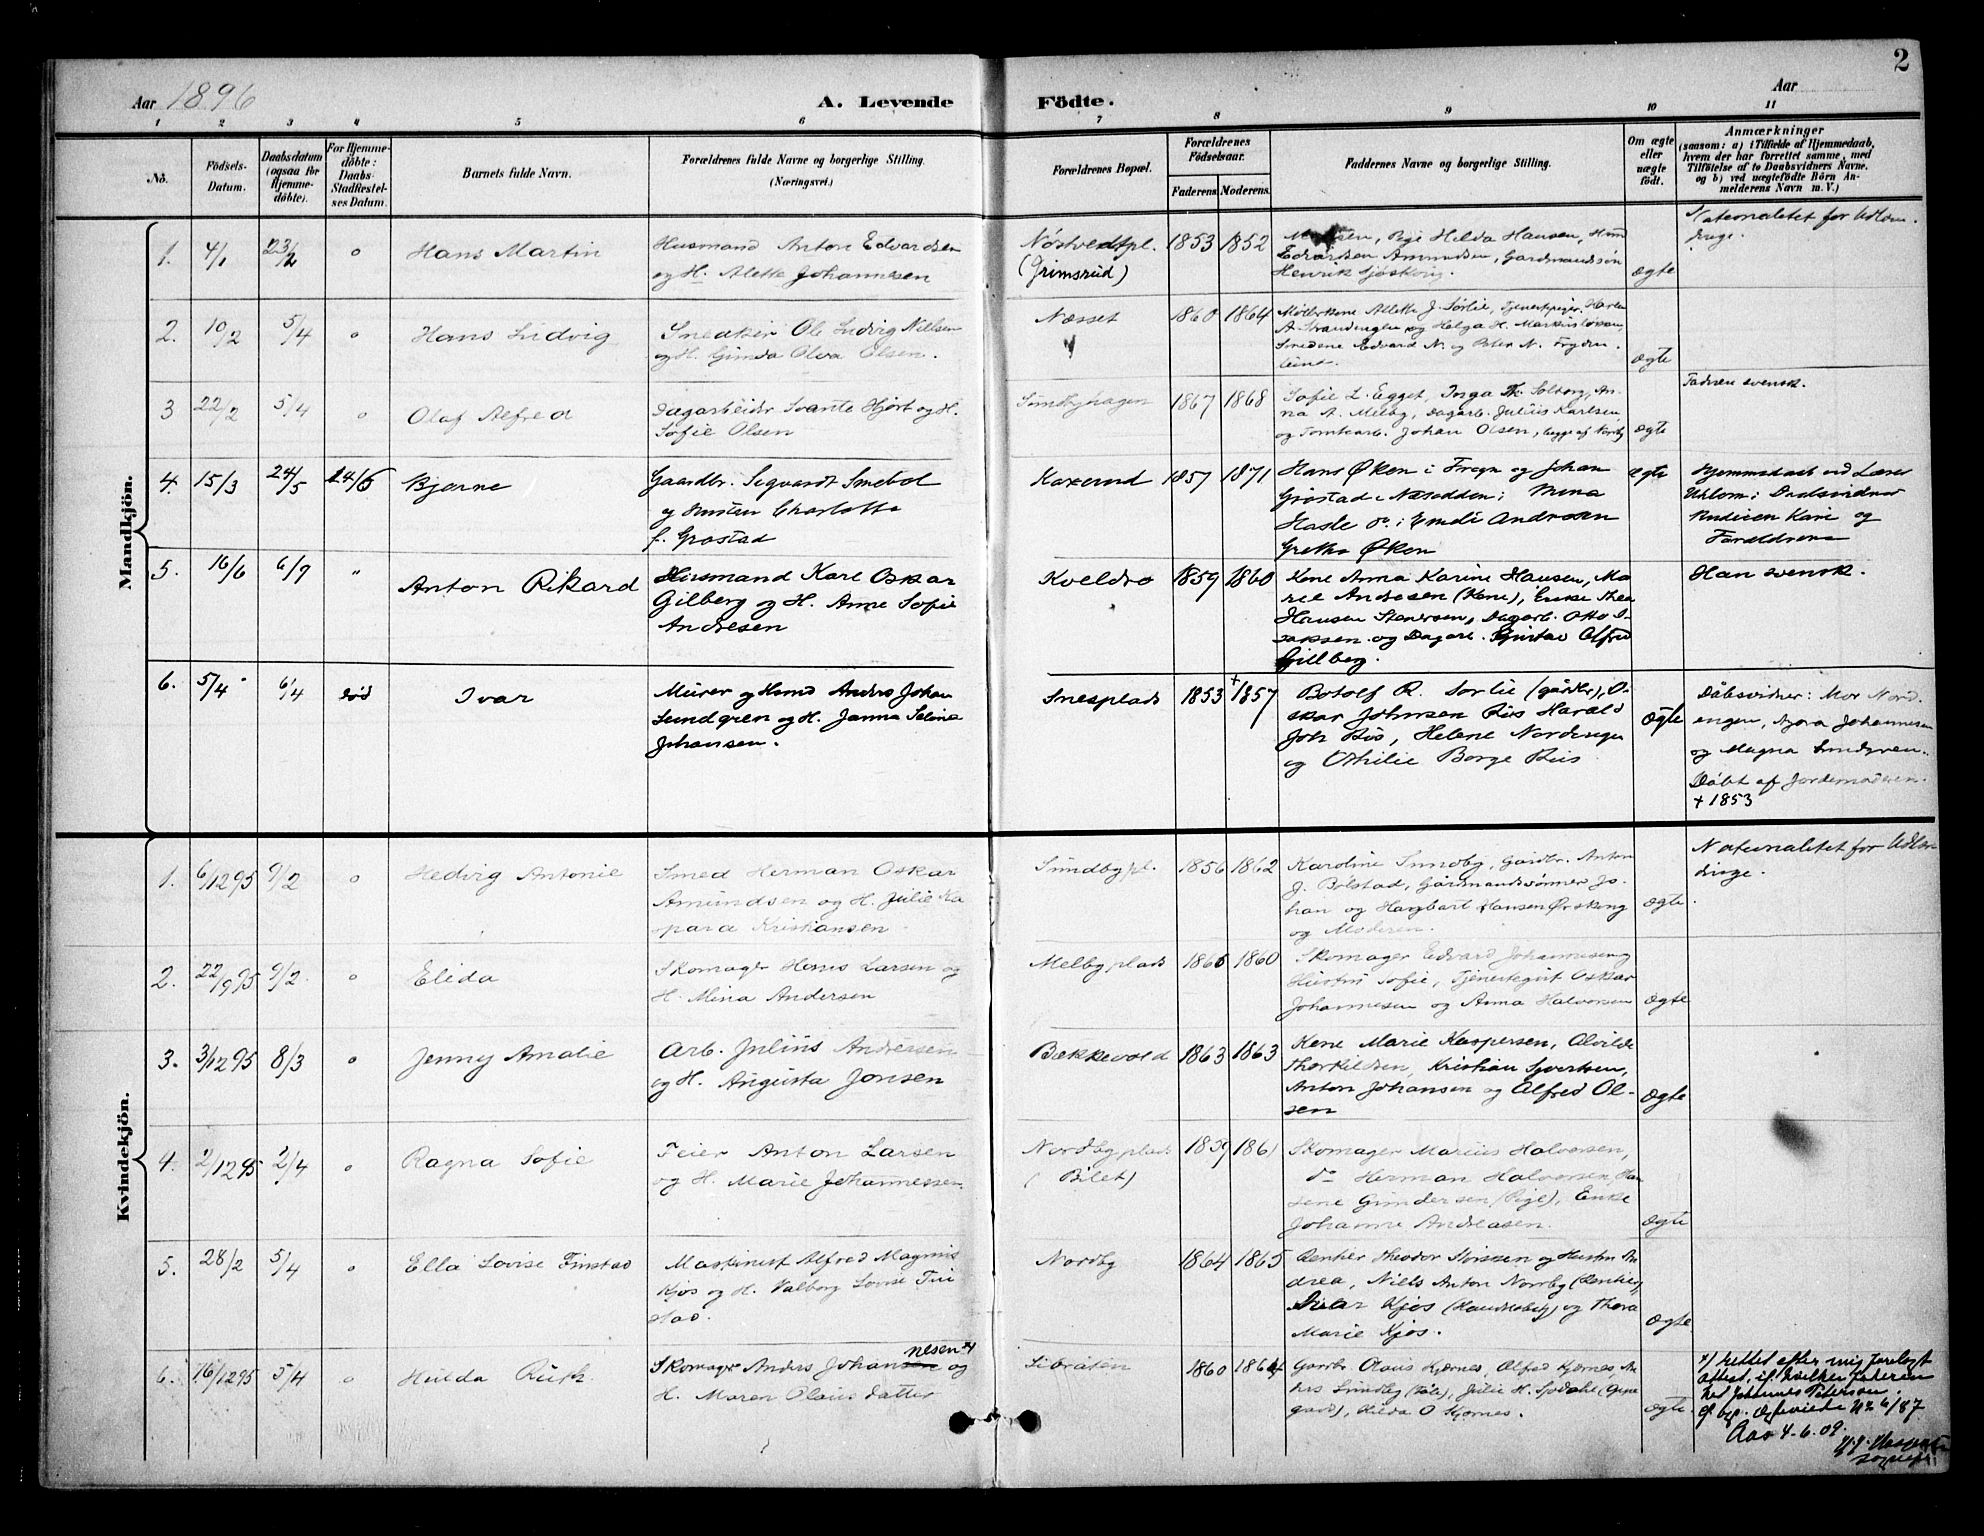 2
Aar 1896
A. Levende
Födte.
Aar
1 2 3 4 5 6 7 8 9 10 11
No.
Födsels-
Datum.
Daabsdatum
(ogsaa for
Hjemme-
döbte).
For Hjemme-
döbte:
Daabs-
Stadfæstel-
ses Datum.
Barnets fulde Navn.
Forældrenes fulde Navne og borgerlige Stilling.
(Næringsvei.)
Forældrenes Bopæl.
Forældrenes
Födselsaar.
Faderens. Moderens.
Faddernes Navne og borgerlige Stilling.
Om ægte
eller
uægte
födt.
Anmærkninger
(saasom: a) i Tilfælde af Hjemmedaab,
hvem der har forrettet samme, med
Tilföielse af to Daabsvidners Navne.
og b) ved uægtefödte Börn An-
melderens Navn m. V.)
Mandkjön.
1. 4/1 23/2 " Hans Martin
Husmand Anton Edvardsen
og H. Alette Johannesen
Nøstvedtpl.
(Grimsrud)
1853 1852
Pige Hilda Hansen,
Edvardsen Amundsen, Gardmandssøn
Henrik Sjøskoug.
ægte
Nationalitet for Udlæn-
dinge.
2. 10/2 5/4 " Hans Ludvig
Snedker Ole Ludvig Nielsen
og H. Ginda Olva Olsen.
Næsset
1860 1864
Alette J. Sørlie,
A. Strandengen og Helga H.
Smedene Edvard N. og Peter N. Tryden-
lund.
ægte
3 22/2 5/4 " Olaf Alfred
Dagarbeider Svante Hjort og H.
Sofie Olsen
Sundbyhagen
1867 1868
Sofie L. Egget, Inga Solberg, An-
na A. Melby, Dagarb. Julius Karlsen
og Tomtearb. Johan Olsen, begge af Nordby
ægte
Faderen svensk.
4. 15/3 24/5 24/5 Bjarne
Gaardbr. Sigvardt Smebøl
og Hustru Charlotte
f. Grøstad
Kaxerud
1857 1871
Hans Øken i Frogn og Johan
Grøstad i Næsodden; Mina
Hasle do; Emili Andresen
Grethe Øken
ægte
Hjemmedøbt ved Læreren
Daabsvidner
Kari og
Forældrene
5. 16/6 6/9 " Anton Rikard
Husmand Karl Oskar
Gilberg og H. Anne Sofie
Andresen
Kveldro
1859 1860
Kone Anna Karine Hansen, Ma-
rie Andresen (Kone), Enke Thea
Hansen Stenersen, Dagarb. Otto I-
saksen og Dagarb. Gustav Alfred
Gillberg.
Han svensk.
6. 5/4 6/4 død Ivar
Murer og Hsmd Anders Johan
Lundgren og H. Janna Seline
Johansen.
Snesplads
1853 +1857
Botolf R. Sørlie (gårdbr), O-
skar Johnsen Riis Harald
Joh Riis, Helene Nordengen
og Othilie Borge Riis
ægte
Dåbsvidner: Mor Nord-
engen, Nora Johannesen
og Magna Lundgren.
Døbt af Jordemoderen.
+ 1853
Kvindekjön.
1. 6/12 95 9/2 " Hedvig Antonie
Smed Herman Oskar
Amundsen og H. Julie Ka
spara Kristiansen
Sundbypl.
1856 1862
Karoline Sundby, Gårdbr. Anton
J. Bølstad, Gårdmandssønner Jo-
han og Hagbart Hansen Ørskoug
og Moderen.
ægte
Nationalitet for Udlæn-
dinge.
2. 22/9 95 9/2 " Elida
Skomager Hans Larsen og
H. Mina Andersen
Melbyplads
1866 1860
Skomager Edvard Johannesen og
Hustru Sofie, Tjenestegut Oskar
Johannesen og Anna Halvorsen
ægte
3. 3/12 95 8/3 " Jenny Amalie
Arb. Julius Andersen
og H. Augusta Jonsen
Bækkevold
1863 1863
Kone Marie Kaspersen, Alvilde
Thorkildsen, Kristian Syvertsen,
Anton Johansen og Alfred Ol-
sen
ægte
4. 2/12 95 2/4 " Ragna Sofie
Feier Anton Larsen
og H. Marie Johannessen
Nordbyplads
(Bilet)
1859 1861
Skomager Marius Halvorsen,
do Herman Halvorsen, Han
sene Gundersen (Pige), Enke
Johanne Andreasen.
ægte
5. 28/2 5/4 " Ella Lovise Finstad
Maskinist Alfred Magnus
Kjos og H. Valborg Lovise Fin
stad.
Nordby
1864 1865
Rentier Theodor og Hustru An
drea, Niels Anton Nordby (Rentier),
Kjos (Handelsbetj) og Thora
Marie Kjos.
ægte
6. 16/12 95 5/4 " Hulda Ruth
nesen x)
Skomager Anders Johansen og
H. Maren Olausdatter
Sideråten
1860 1864
Gaardbr Olaus Kjærnes, Alfred Kjærnes, An-
ders Sundby, Julie H. Sjødahl
Hilda O Kjærnes.
ægte
x) rettet efter mig forelagt
attest, if. hvilken faderen
hed Johannes Peterson.
Aas 4-6.09.